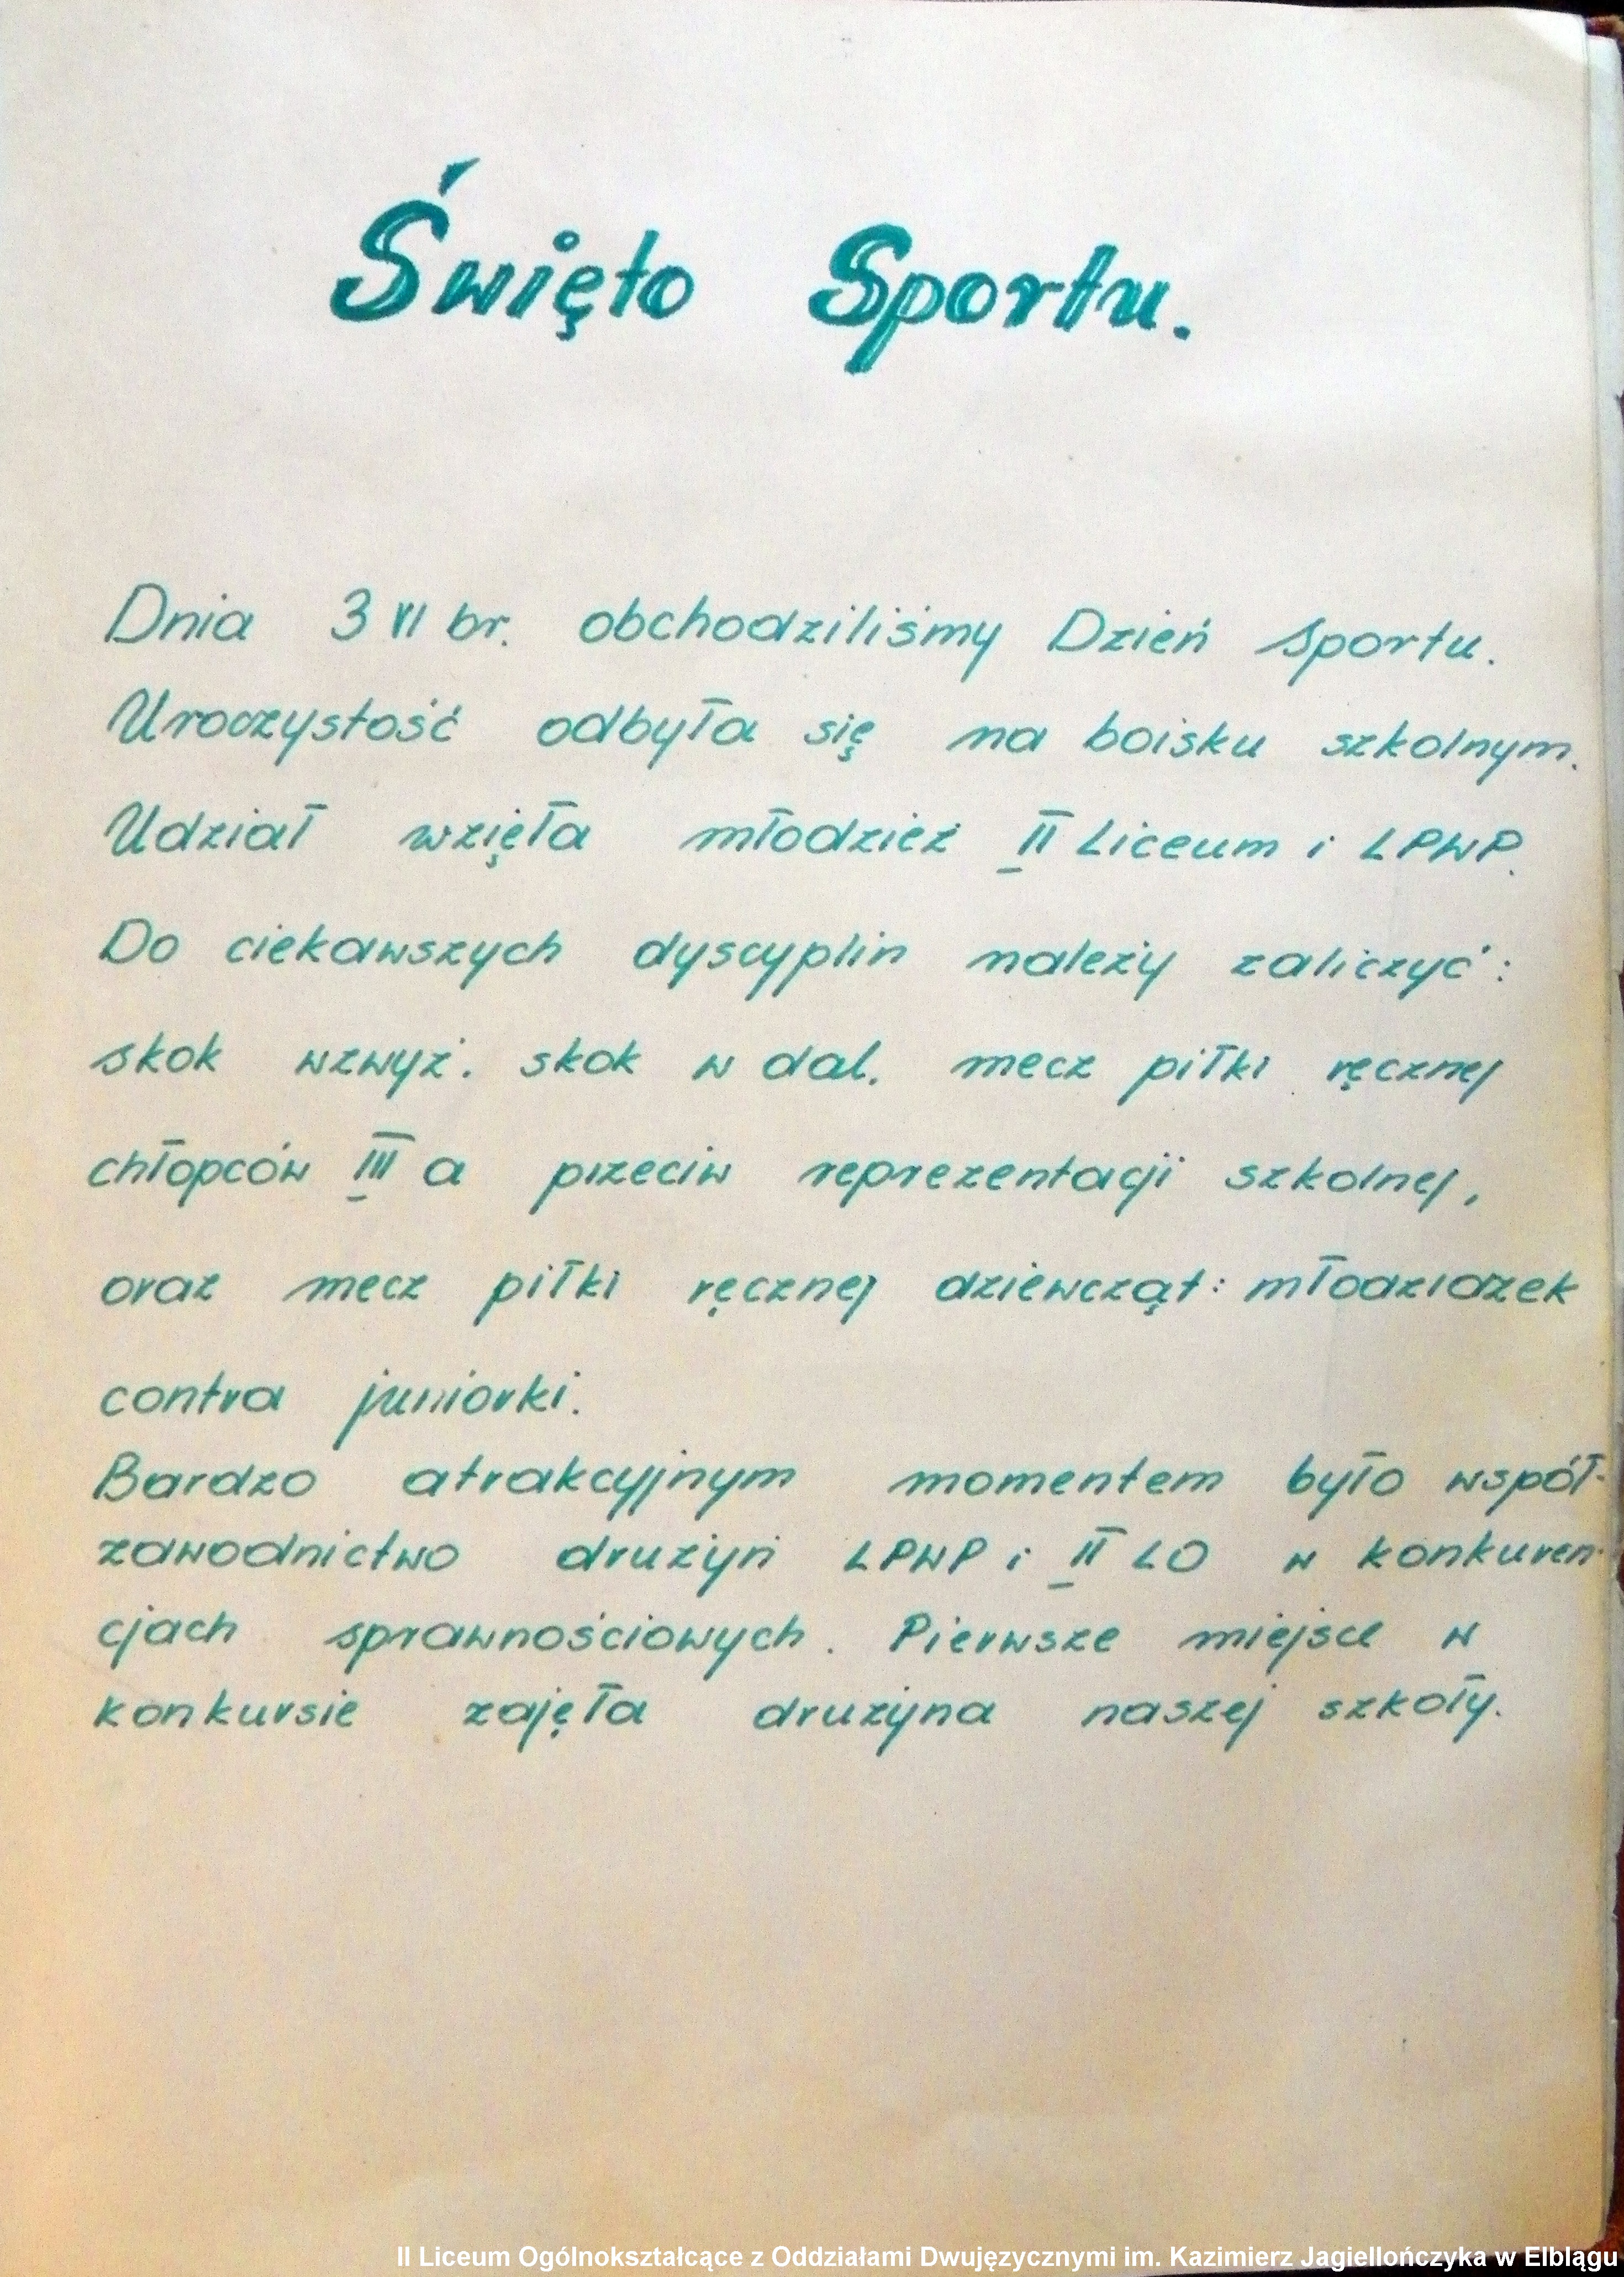 Święto Sportu.
Dnia 3 VI br. obchodziliśmy Dzień Sportu.
Uroczystość odbyła się na boisku szkolnym.
Udział wzięła młodzież II Liceum i LPWP.
Do ciekawszych dyscyplin należy zaliczyć:
skok wzwyż. skok w dal. mecz piłki ręcznej
chłopców III a przeciw reprezentacji szkolnej,
oraz mecz piłki ręcznej dziewcząt: młodziczek
contra juniorki.
Bardzo atrakcyjnym momentem było współ-
zawodnictwo drużyn LPWP i II LO w konkuren-
cjach sprawnościowych. Pierwsze miejsce w
konkursie zajęła drużyna naszej szkoły.
II Liceum Ogólnokształcące z Oddziałami Dwujęzycznymi im. Kazimierz Jagiellończyka w Elblągu